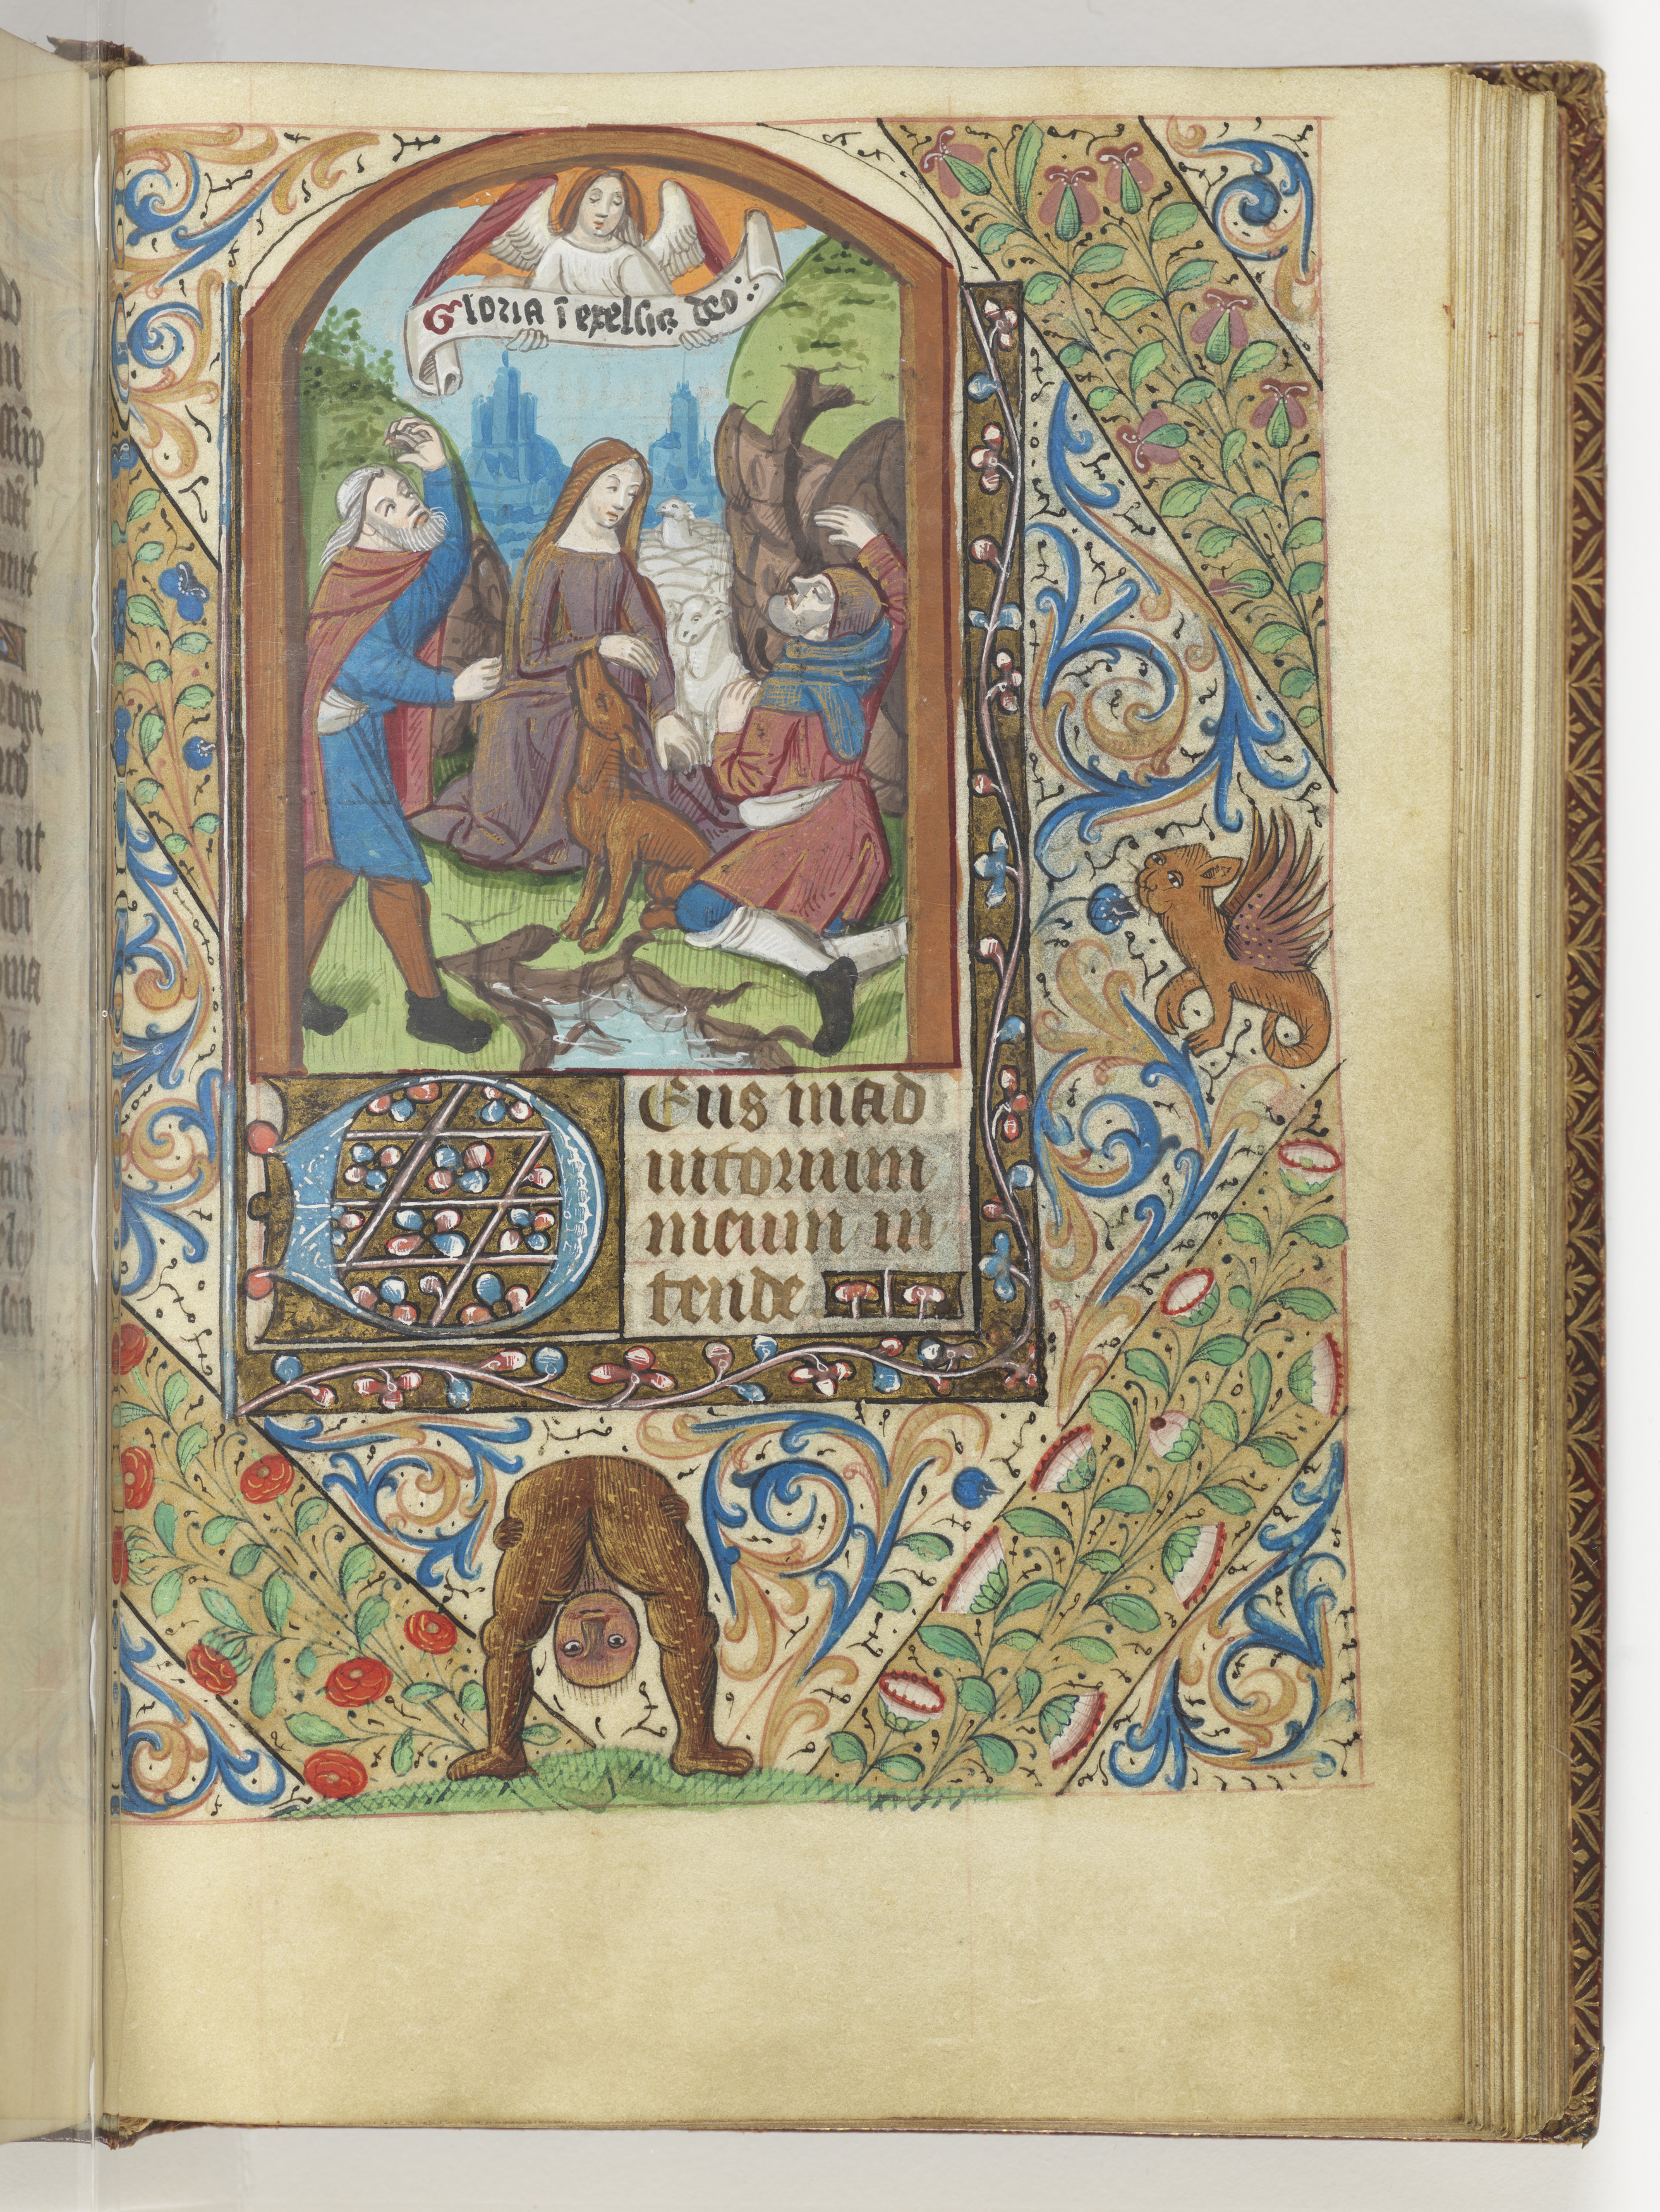 Gloria ī exelsis deo
DEus in ad
iutorium
meum in
tende